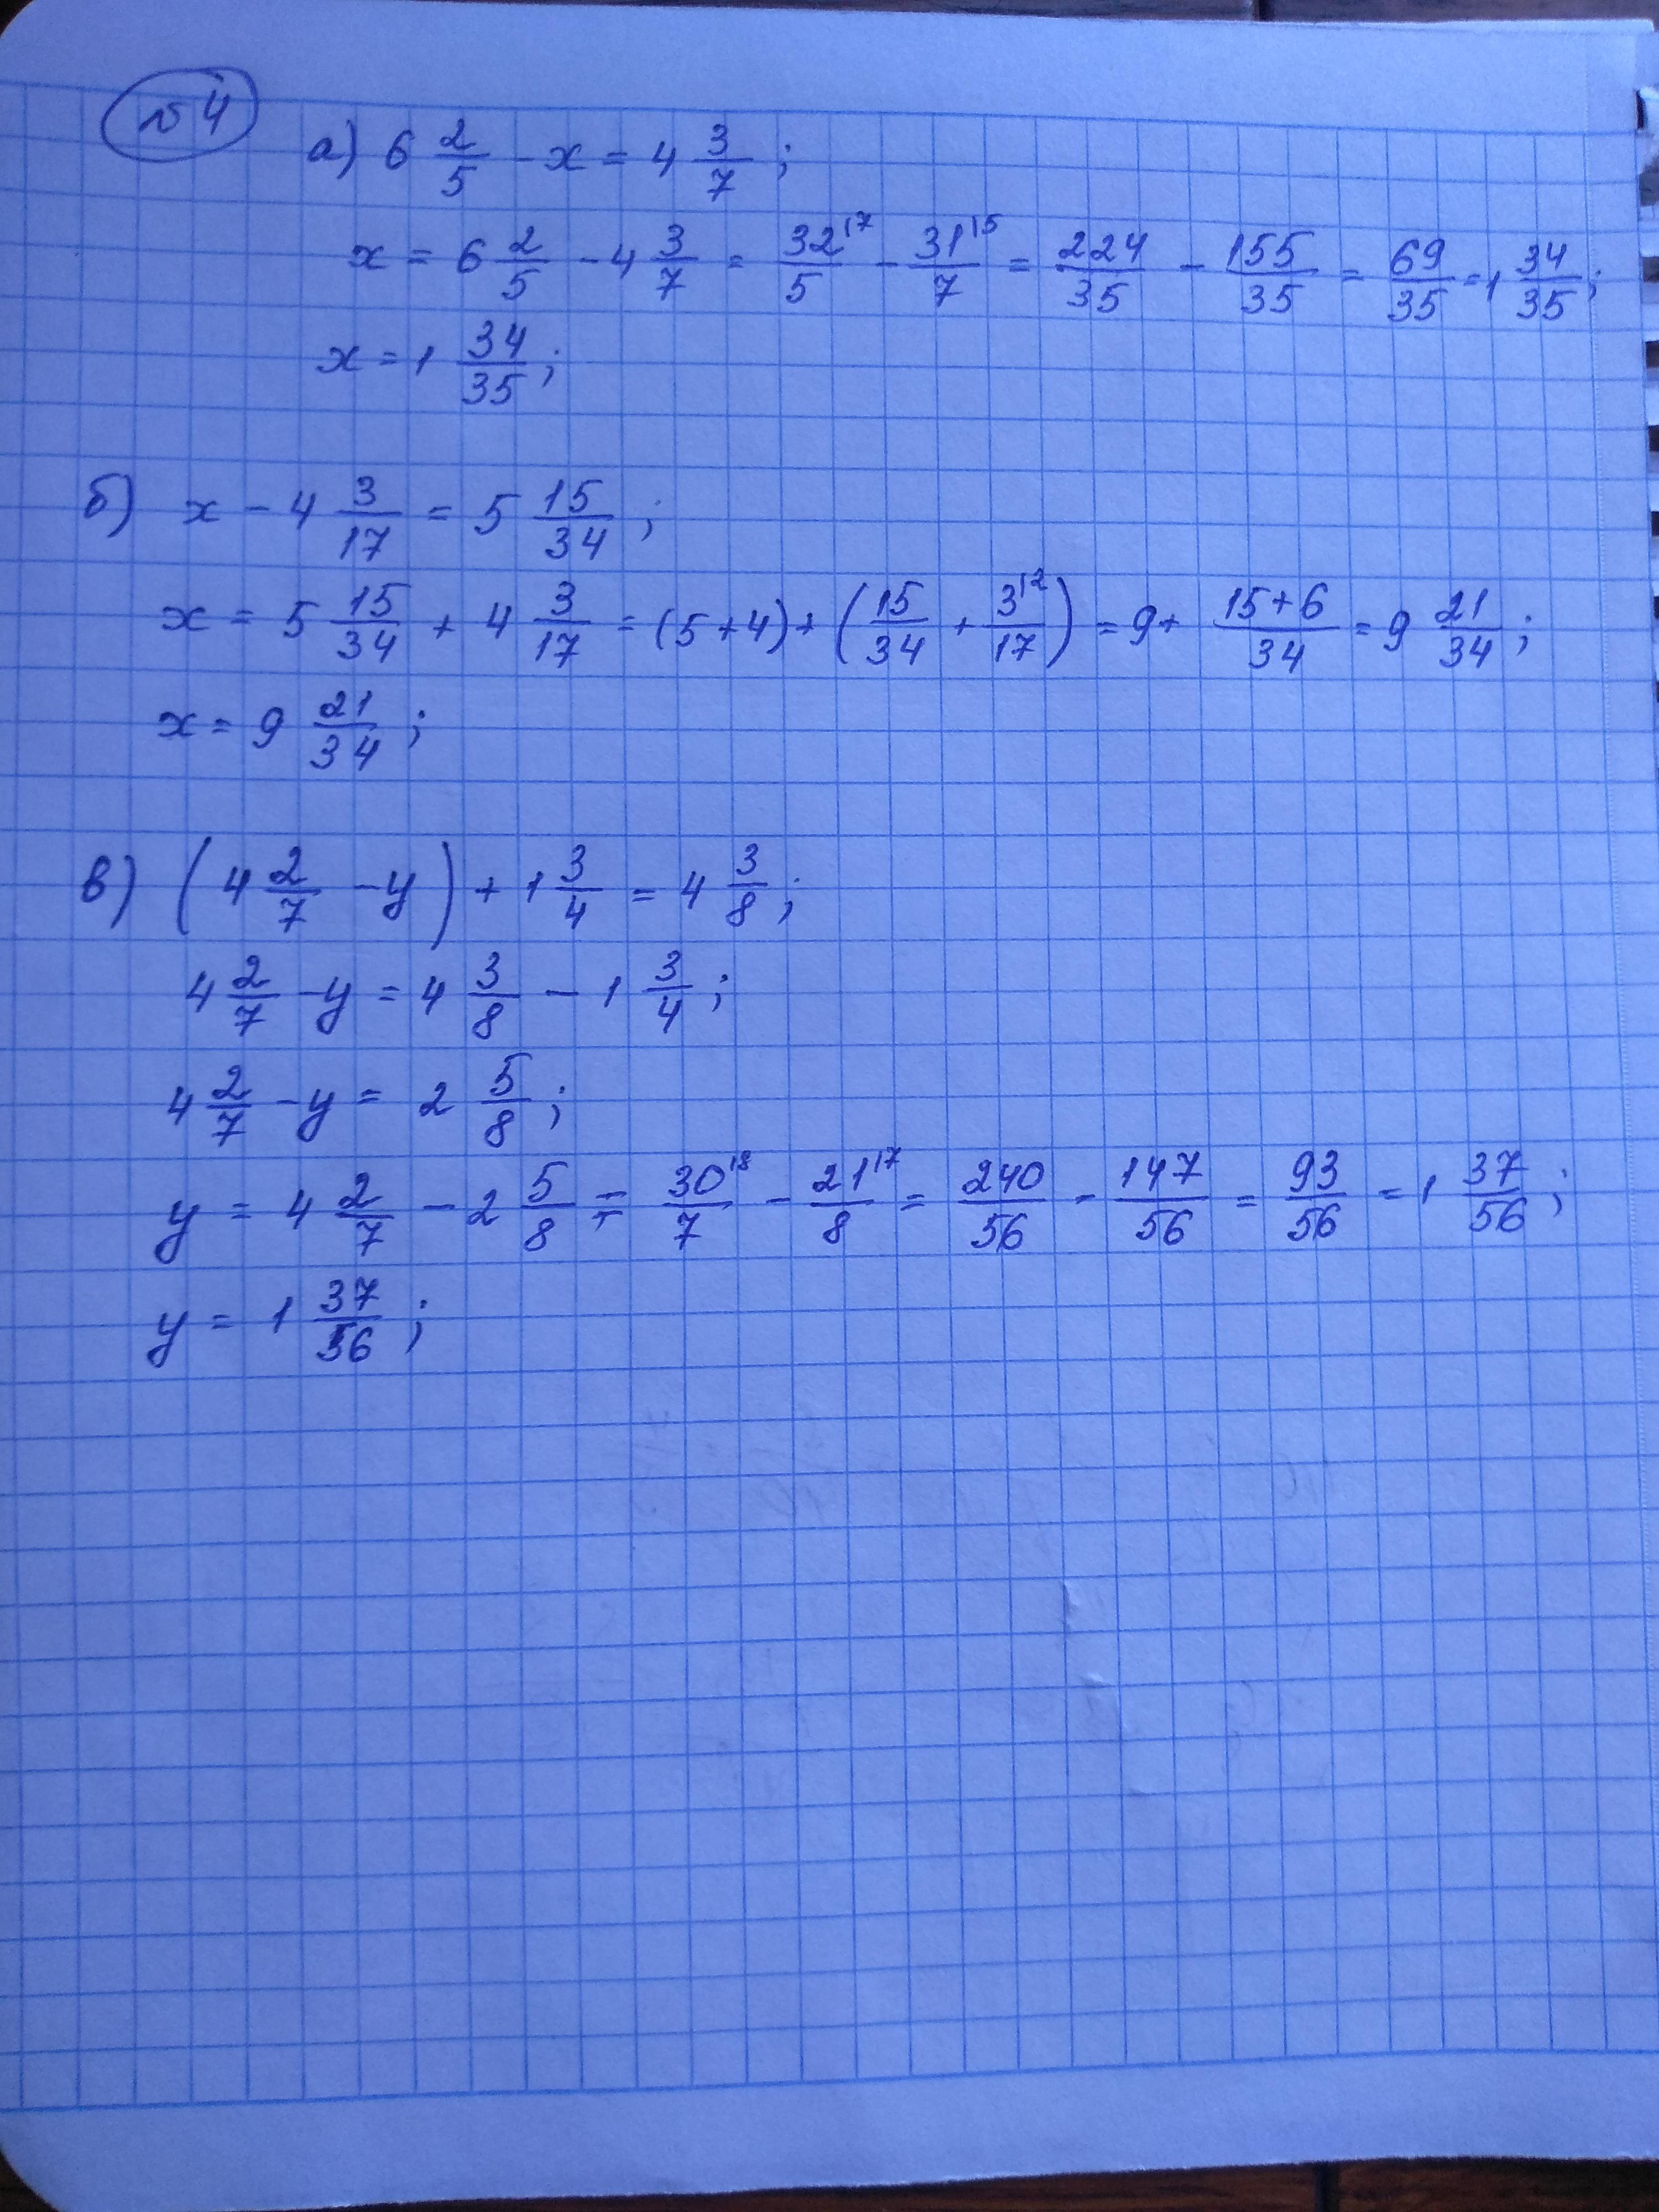 №4
а) 6 2/5 - x = 4 3/7 ;
x = 6 2/5 - 4 3/7 = 32|7/5 - 31|5/7 = 224/35 - 155/35 = 69/35 = 1 34/35 ;
x = 1 34/35 ;
б) x - 4 3/17 = 5 15/34 ;
x = 5 15/34 + 4 3/17 = (5+4) + (15/34 + 3|2/17) = 9 + 15+6/34 = 9 21/34 ;
x = 9 21/34 ;
в) (4 2/7 - y) + 1 3/4 = 4 3/8 ;
4 2/7 - y = 4 3/8 - 1 3/4 ;
4 2/7 - y = 2 5/8 ;
y = 4 2/7 - 2 5/8 = 30|8/7 - 21|7/8 = 240/56 - 147/56 = 93/56 = 1 37/56 ;
y = 1 37/56 ;